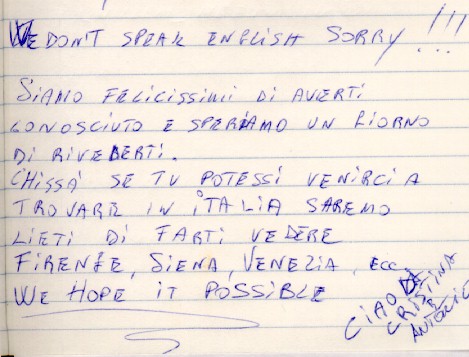 WE DON'T SPEAK ENGLISH SORRY!!!
SIAMO FELICISSIMI DI AVERTI
CONOSCIUTO E SPERIAMO UN GIORNO
DI RIVEDERTI.
CHISSA' SE TU POTESSI VENIRCI A
TROVARE IN ITALIA SAREMO
LIETI DI FARTI VEDERE
FIRENZE, SIENA, VENEZIA, ECC
WE HOPE IT POSSIBLE
CIAO DA
CRISTINA
ANTONIO